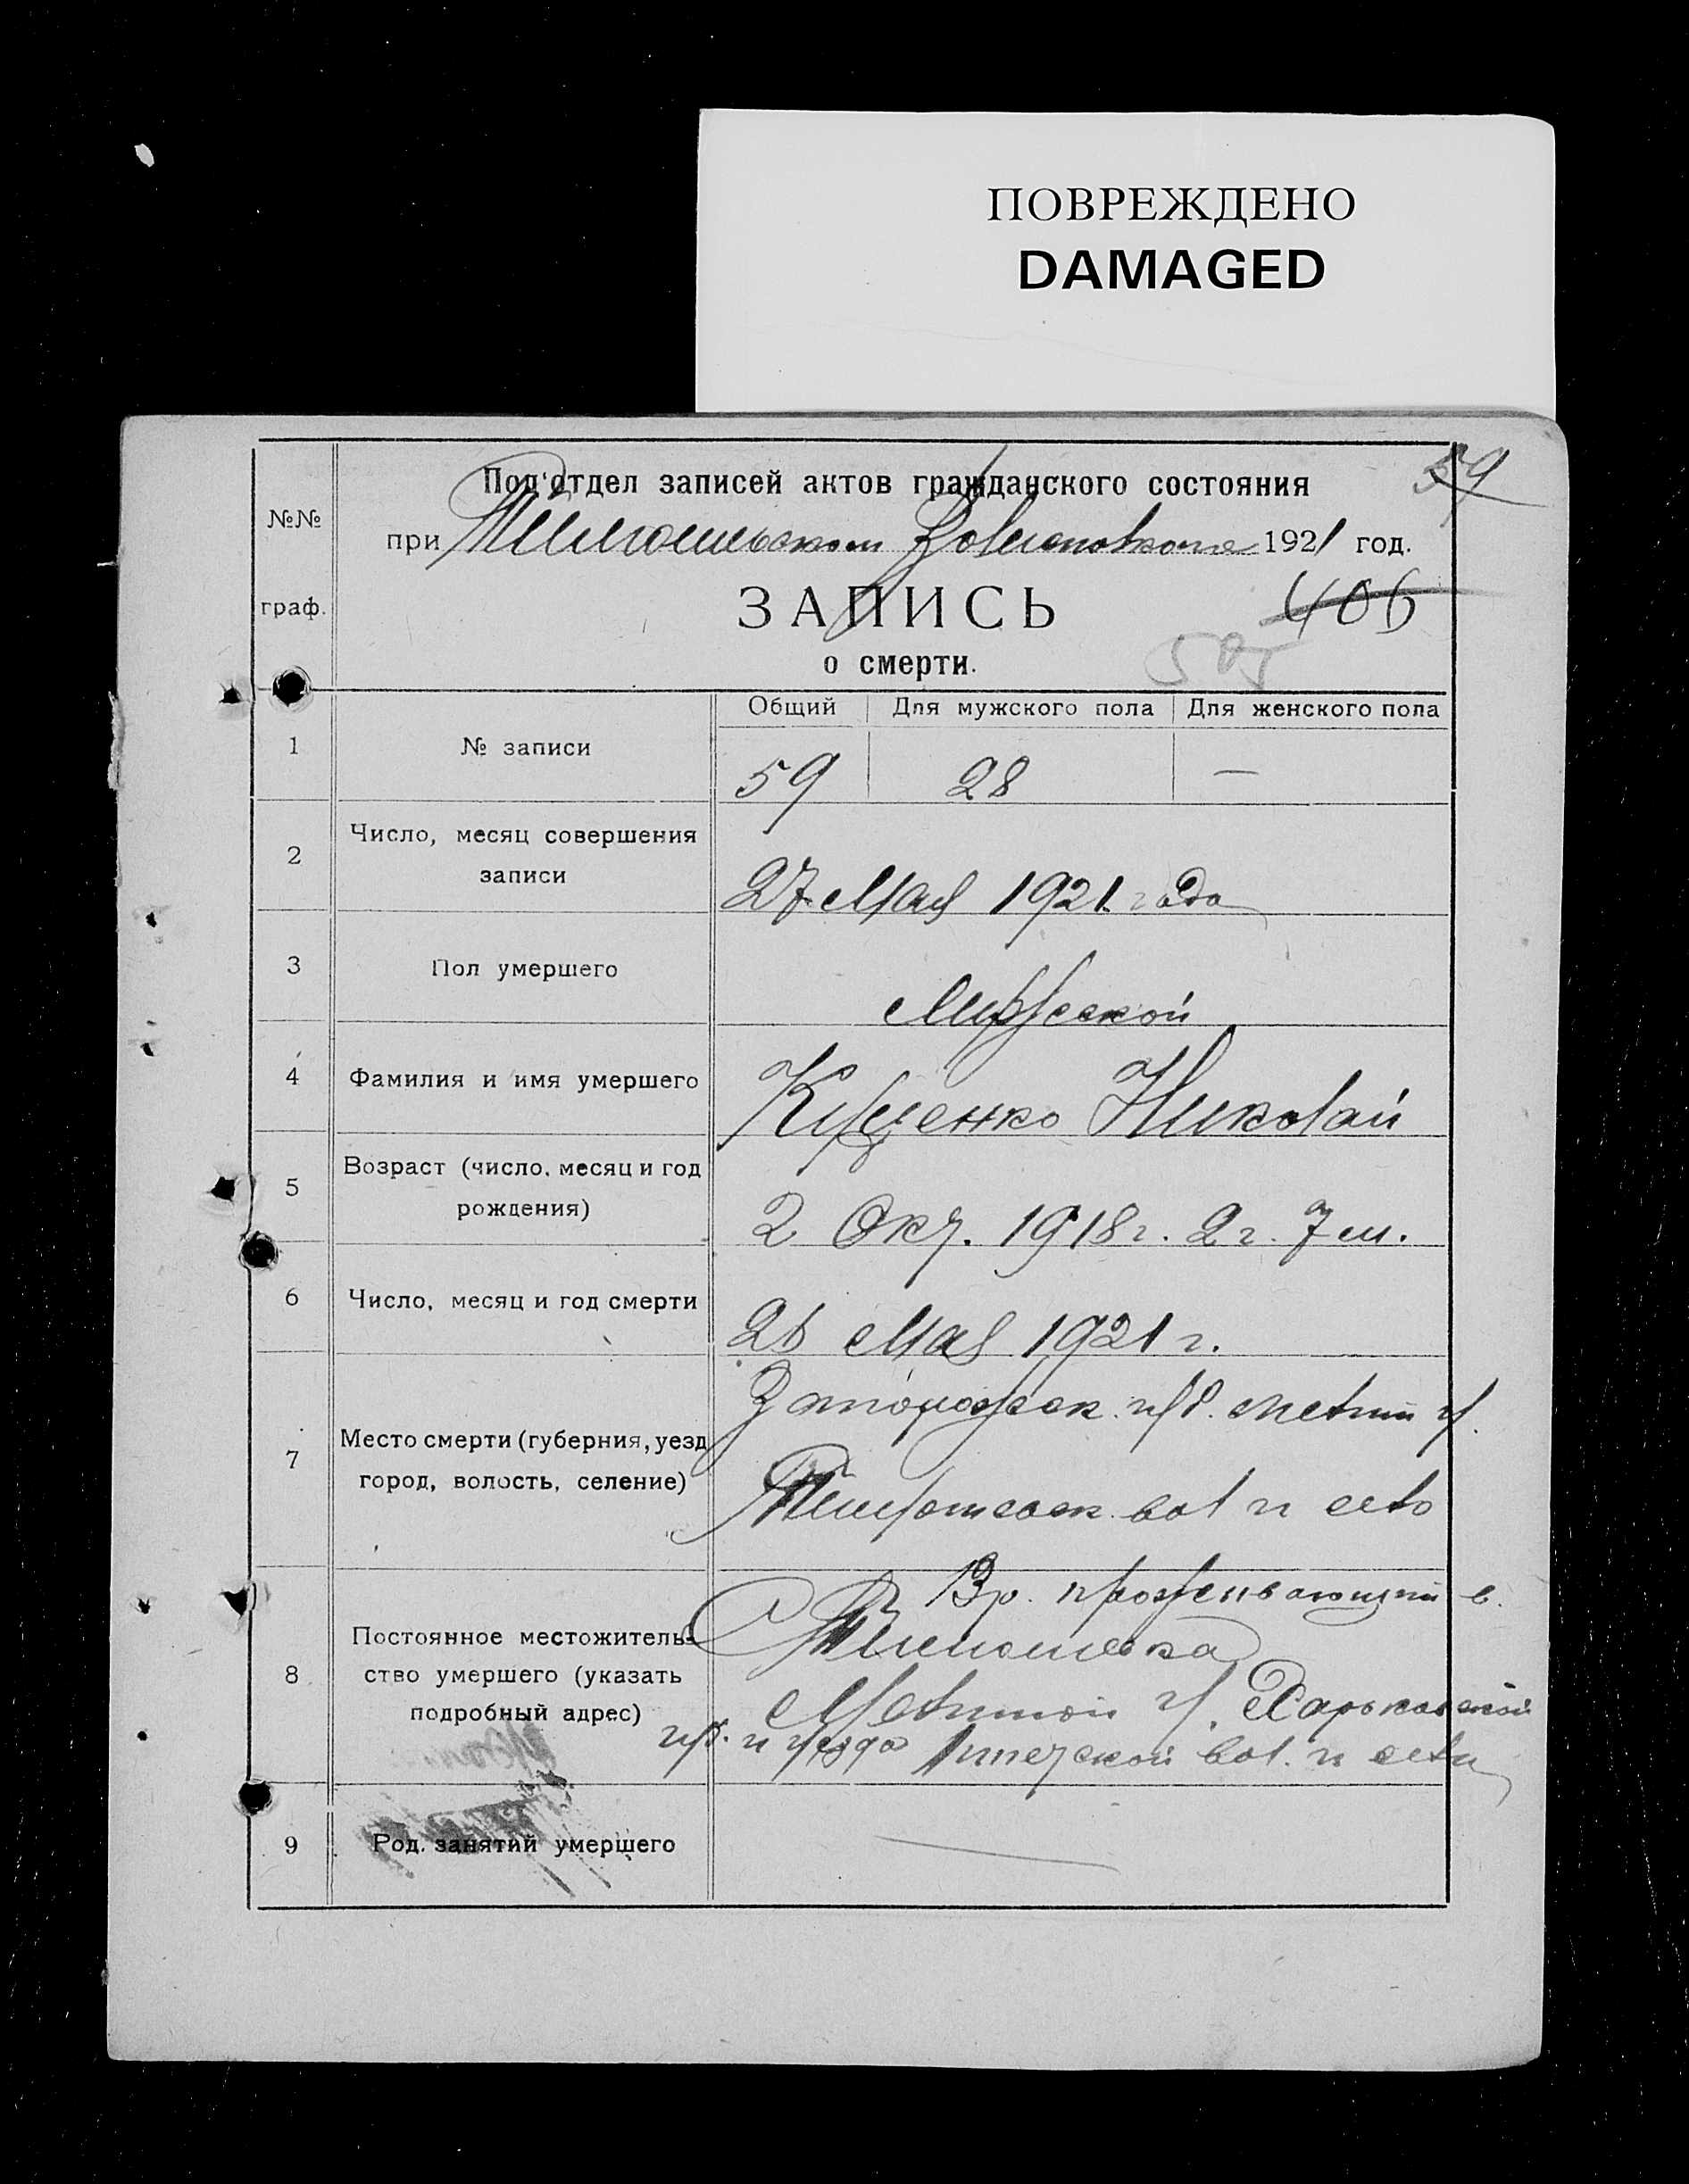 ПОВРЕЖДЕНО
DAMAGED
59
№№
граф.
Подотдел записей актов гражданского состояния
при 1921 год.
ЗАПИСЬ
406
о смерти.
Общий Для мужского пола Для женского пола
1 № записи 59 28 —
2 Число, месяц совершения
записи
27 Мая 1921 года
3 Пол умершего Мужской
4 Фамилия и имя умершего Куценко Николай
5 Возраст (число, месяц и год
рождения)
2 Окт. 1918 г. 2 г. 7 м.
6 Число, месяц и год смерти 26 Мая 1921 г.
7 Место смерти (губерния, уезд
город, волость, селение)
Запорожск. губ. Мелит у.
вол и село
8 Постоянное местожитель-
ство умершего (указать
подробный адрес)
Вр. проживающий в.
Мелитой у. Харьковской
губ. и уезда вол. и села
9 Род занятий умершего —